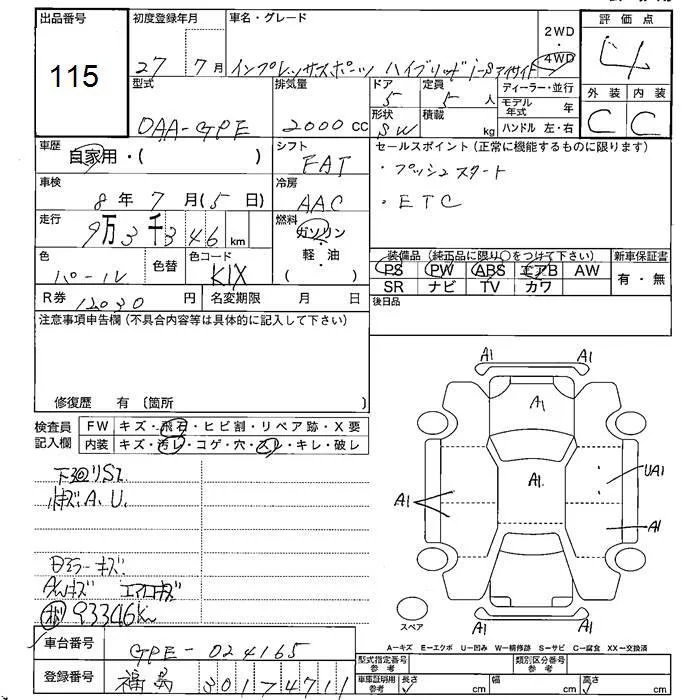 出品番号
115
初度登録年月
27年 7月
車名・グレード
インプレッサスポーツ ハイブリッド i-Sアイサイト
2WD
4WD
評価点
4
外装 内装
C C
型式
DAA-GPE
排気量
2000 cc
ドア
5
定員
5人
形状
SW
積載
kg
ディーラー・並行
モデル年式 年
ハンドル 左・右
車歴
自家用・( )
シフト
FAT
セールスポイント(正常に機能するものに限ります)
・プッシュスタート
・ETC
車検
8年 7月(5日)
冷房
AAC
走行
9万3千346km
燃料
ガソリン
・
軽・油
( )
色
パール
色替
色コード
K1X
装備品(純正品に限り○をつけて下さい)
PS PW ABS エアB AW
SR ナビ TV カワ
新車保証書
有・無
R券 12030円
名変期限 月 日
後日品
注意事項申告欄(不具合内容等は具体的に記入して下さい)
修復歴 有(箇所
検査員記入欄
FW キズ・飛石・ヒビ割・リペア跡・X要
内装 キズ・汚レ・コゲ・穴・スレ・キレ・破レ
下廻リSa
小キズA、U
Dミラーキズ
AWキズ エアロキズ
93346Km
A1 A1
A1
A1
UA1
A1
A1
A1 A1
スペア
A-キズ E-エクボ U-凹み W-補修跡 S-サビ C-腐食 XX-交換済
車台番号
GPE-024165
登録番号
福島 301 ソ 4711
型式指定番号 参考
類別区分番号 参考
車庫証明用 参考
長さ cm
幅 cm
高さ cm